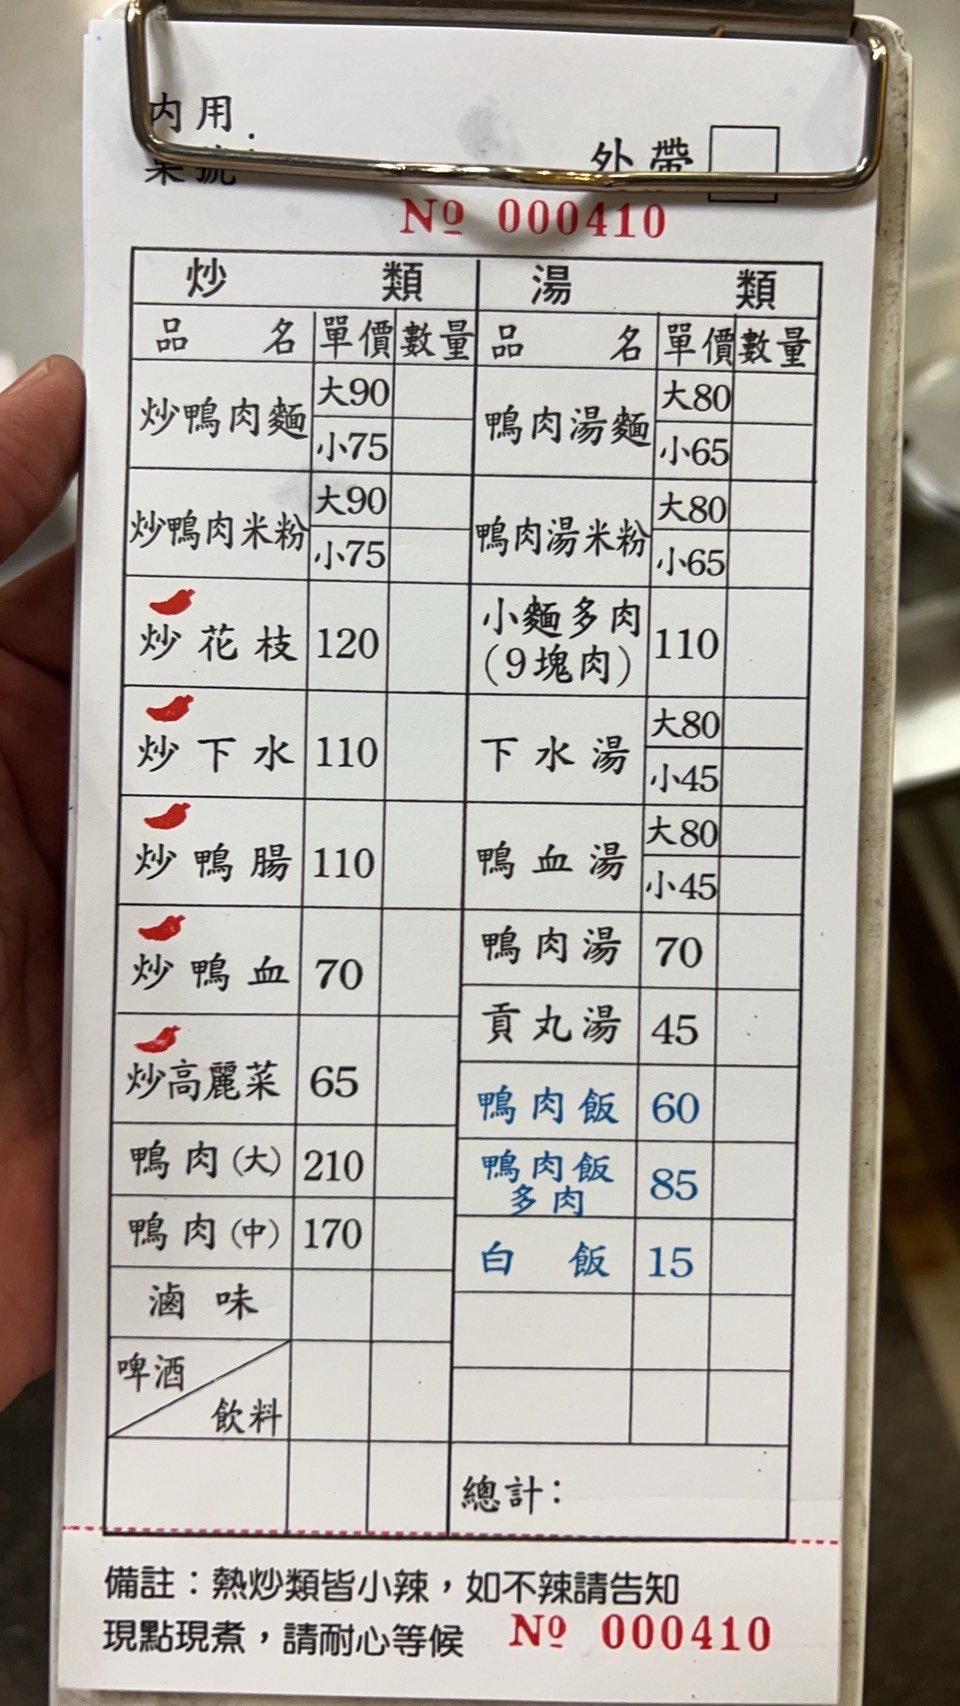 內用
桌號：
外帶
Nº 000410
炒類
品名 單價 數量
炒鴨肉麵 大90
小75
炒鴨肉米粉 大90
小75
炒花枝 120
炒下水 110
炒鴨腸 110
炒鴨血 70
炒高麗菜 65
鴨肉(大) 210
鴨肉(中) 170
滷味
啤酒
飲料
湯類
品名 單價 數量
鴨肉湯麵 大80
小65
鴨肉湯米粉 大80
小65
小麵多肉
(9塊肉) 110
下水湯 大80
小45
鴨血湯 大80
小45
鴨肉湯 70
貢丸湯 45
鴨肉飯 60
鴨肉飯
多肉 85
白飯 15
總計：
備註：熱炒類皆小辣，如不辣請告知
現點現煮，請耐心等候 Nº 000410